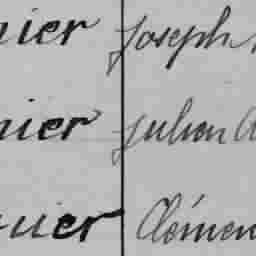 nier Joseph
nier Julien A
nier Clémen